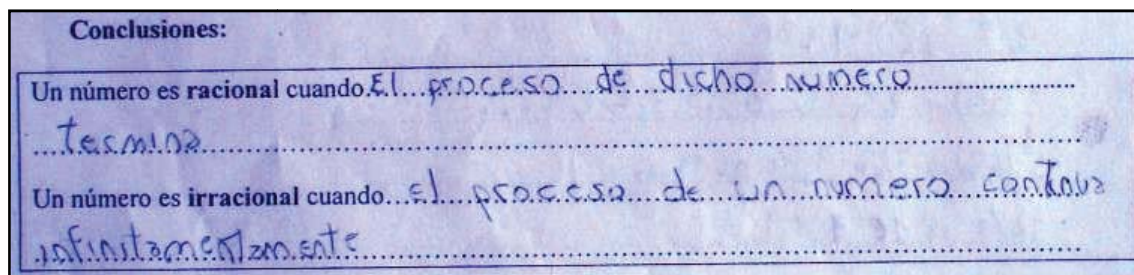 Conclusiones:
Un número es racional cuando El proceso de dicho numero
termina
Un número es irracional cuando El proceso de un numero continua
infinitamentamente